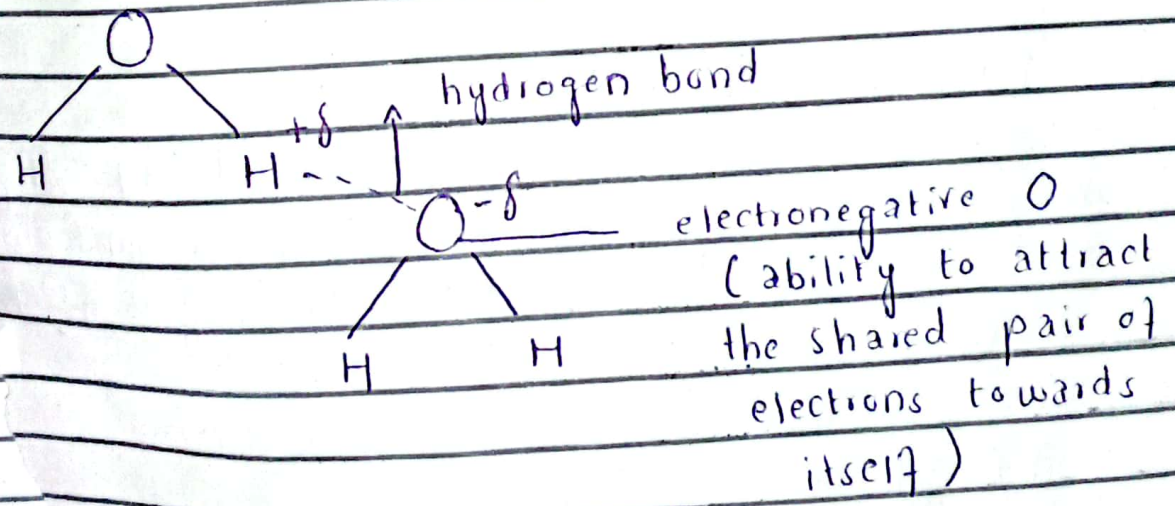 O
hydrogen bond
H H +δ
O -δ
electronegative O
(ability to attract
H H the shared pair of
electrons towards
itself)